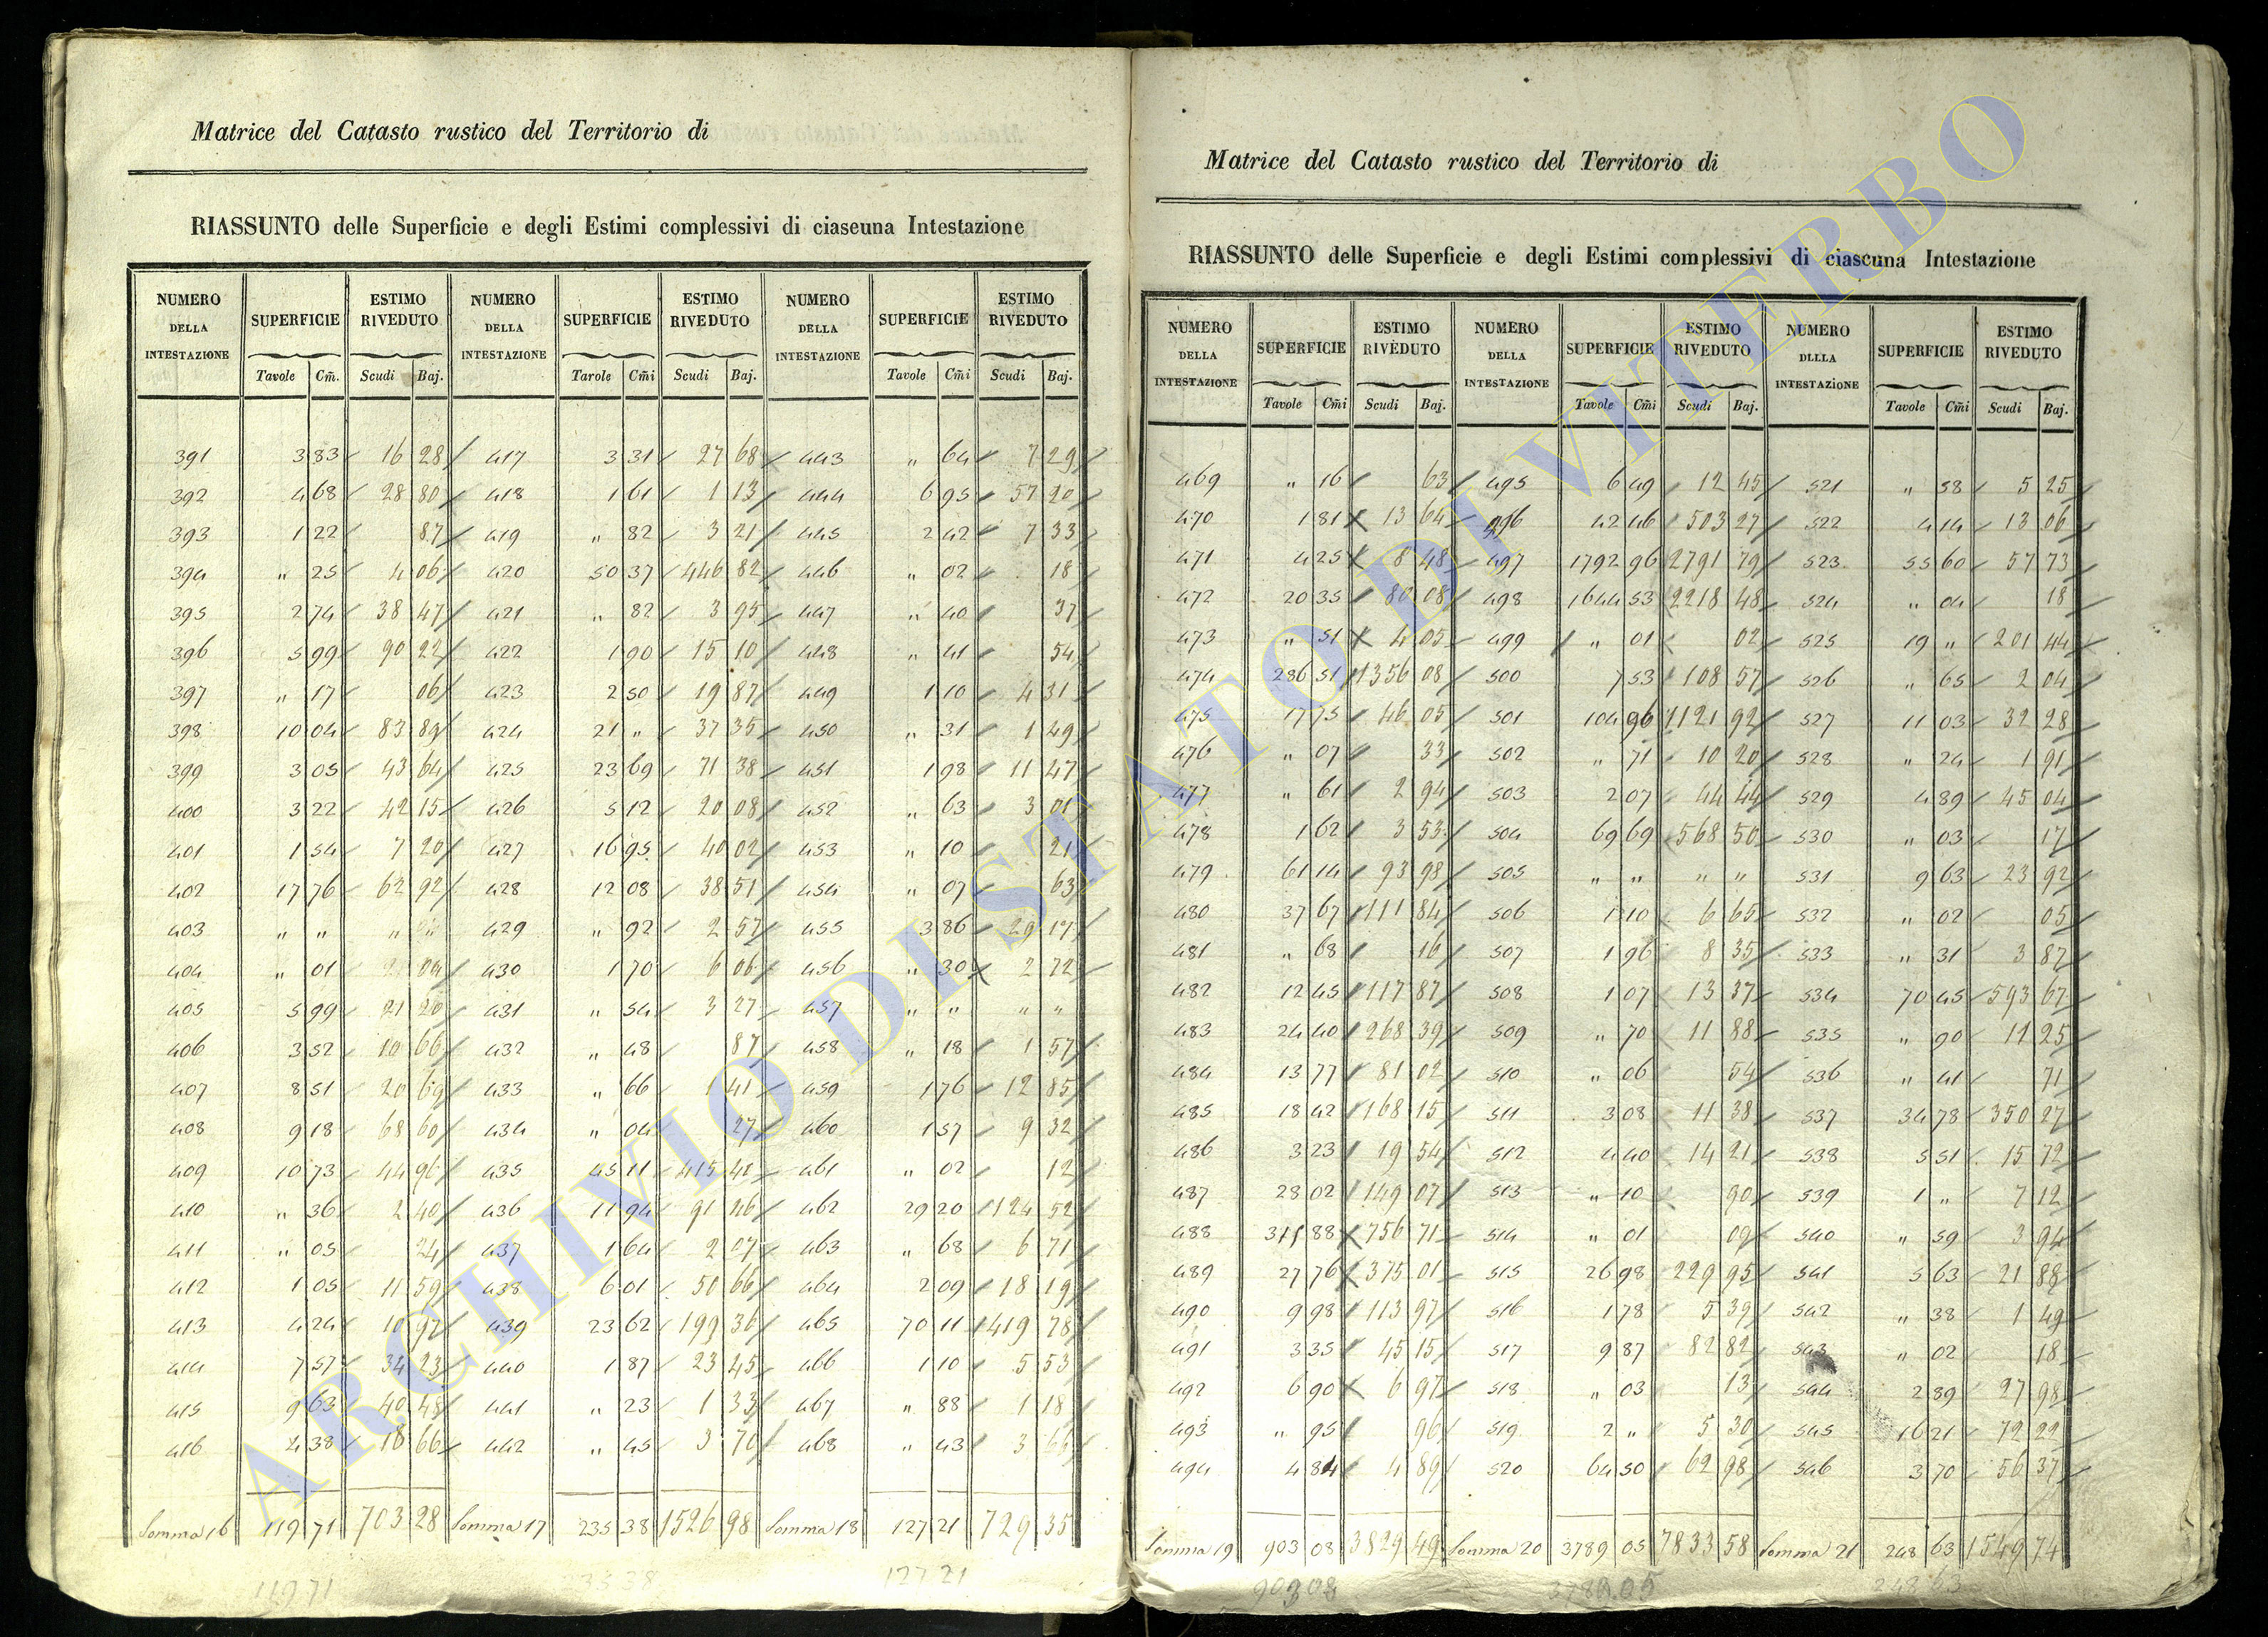 Matrice del Catasto rustico del Territorio di
RIASSUNTO delle Superficie e degli Estimi complessivi di ciaseuna Intestazione
NUMERO DELLA INTESTAZIONE SUPERFICIE ESTIMO RIVEDUTO NUMERO DELLA INTESTAZIONE SUPERFICIE ESTIMO RIVEDUTO NUMERO DELLA INTESTAZIONE SUPERFICIE ESTIMO RIVEDUTO
Tavole Cm̃. Scudi Baj. Tarole Cm̃i Scudi Baj. Tavole Cm̃i Scudi Baj.
391 3 83 16 28 417 3 31 27 68 443 " 64 7 29
392 4 68 28 80 418 1 61 1 13 444 6 95 57 20
393 1 22 87 419 " 82 3 21 445 2 42 7 33
394 " 25 4 06 420 50 37 446 82 446 " 02 18
395 2 74 38 47 421 " 82 3 95 447 " 40 37
396 5 99 90 22 422 1 90 15 10 448 " 41 54
397 " 17 06 423 2 50 19 87 449 1 10 4 31
398 10 04 83 89 424 21 " 37 35 450 " 31 1 49
399 3 05 43 64 425 23 69 71 38 451 1 98 11 47
400 3 22 42 15 426 5 12 20 08 452 " 63 3 01
401 1 54 7 20 427 16 95 40 02 453 " 10 21
402 17 76 62 92 428 12 08 38 51 454 " 07 63
403 " " " " 429 " 92 2 57 455 3 86 29 17
404 " 01 04 430 1 70 6 06 456 " 30 2 72
405 5 99 21 20 431 " 54 3 27 457 " " " "
406 3 52 10 66 432 " 48 87 458 " 18 1 57
407 8 51 20 69 433 " 66 1 41 459 1 76 12 85
408 9 18 68 60 434 " 04 27 460 1 57 9 32
409 10 73 44 96 435 45 11 415 42 461 " 02 12
410 " 36 2 40 436 11 94 91 46 462 29 20 124 52
411 " 05 24 437 1 64 2 07 463 " 68 6 71
412 1 05 11 59 438 6 01 50 66 464 2 09 18 19
413 4 24 10 97 439 23 62 199 36 465 70 11 419 78
414 7 57 34 23 440 1 87 23 45 466 1 10 5 53
415 9 63 40 48 441 " 23 1 33 467 " 88 1 18
416 4 38 18 66 442 " 45 3 70 468 " 43 3 64
Somma 16 119 71 703 28 Somma 17 235 38 1526 98 Somma 18 127 21 729 35
119 71 35 38 127 21
Matrice del Catasto rustico del Territorio di
RIASSUNTO delle Superficie e degli Estimi complessivi di ciascuna Intestazione
NUMERO DELLA INTESTAZIONE SUPERFICIE ESTIMO RIVEDUTO NUMERO DELLA INTESTAZIONE SUPERFICIE ESTIMO RIVEDUTO NUMERO DLLLA INTESTAZIONE SUPERFICIE ESTIMO RIVEDUTO
Tavole Cm̃i Scudi Baj. Tavole Cm̃i Scudi Baj. Tavole Cm̃i Scudi Baj.
469 " 16 63 495 6 49 12 45 521 " 58 5 25
470 1 81 13 64 496 42 46 503 27 522 4 14 13 06
471 4 25 8 48 497 1792 96 2791 79 523 55 60 57 73
472 20 35 80 08 498 1644 53 2218 48 524 " 04 18
473 " 51 4 05 499 " 01 02 525 19 " 201 44
474 286 51 1356 08 500 7 53 108 57 526 " 65 2 04
475 17 75 46 05 501 104 96 1121 92 527 11 03 32 28
476 " 07 33 502 " 71 10 20 528 " 24 1 91
477 " 61 2 94 503 2 07 44 44 529 4 89 45 04
478 1 62 3 53 504 69 69 568 50 530 " 03 17
479 61 14 93 98 505 " " " " 531 9 63 23 92
480 37 67 111 84 506 1 10 6 65 532 " 02 05
481 " 68 16 507 1 96 8 35 533 " 31 3 87
482 12 45 117 87 508 1 07 13 37 534 70 45 593 67
483 24 40 268 39 509 " 70 11 88 535 " 90 11 25
484 13 77 81 02 510 " 06 54 536 " 41 71
485 18 42 168 15 511 3 08 11 38 537 34 78 350 27
486 3 23 19 54 512 4 40 14 21 538 5 51 15 72
487 28 02 149 07 513 " 10 90 539 1 " 7 12
488 315 88 756 71 514 " 01 09 540 " 59 3 94
489 27 76 375 01 515 26 98 229 95 541 5 63 21 88
490 9 98 113 97 516 1 78 5 39 542 " 38 1 49
491 3 35 45 15 517 9 87 82 82 543 " 02 18
492 6 90 6 97 518 " 03 13 544 2 89 27 98
493 " 95 96 519 2 " 5 30 545 16 21 72 22
494 4 84 4 89 520 64 50 62 98 546 3 70 56 37
Somma 19 903 08 3829 49 Somma 20 3789 05 7833 58 Somma 21 248 63 1549 74
903 08 3789.05 248 63
ARCHIVIO DI STATO DI VITERBO